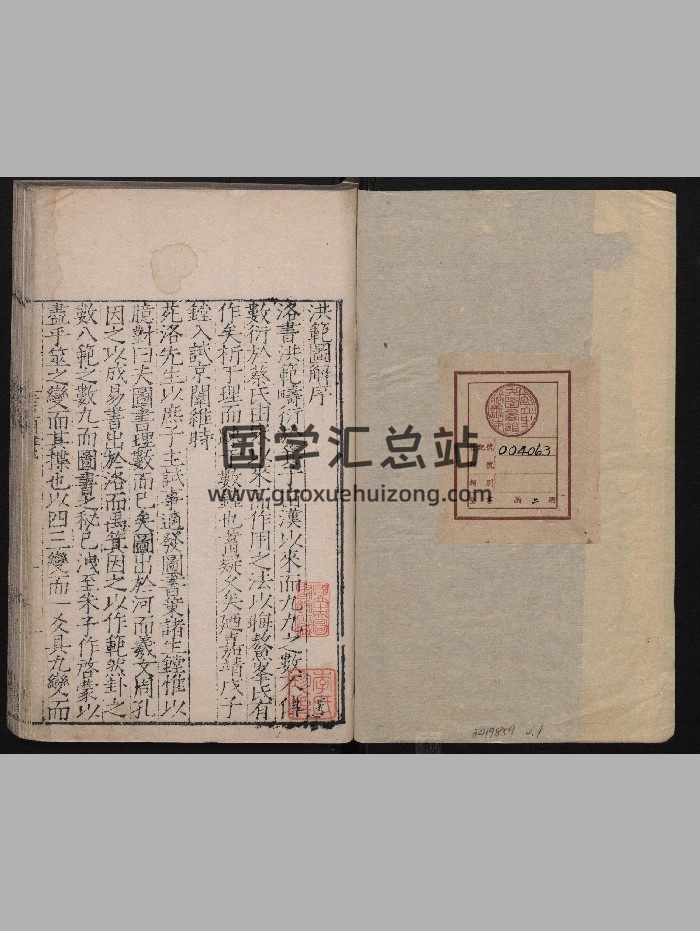 洪範圖解序
洛書洪範疇衍 漢以來而九九之數
數衍於蔡氏由 以來而作用之法以晦 氏有
作矣析於理而 數鏗也 疑久矣 嘉靖戊子
鏗入試京闈維時
苑洛先生以庶子主試事適發圖書策諸生鏗惟以
臆對曰夫圖書理數而已矣圖出於河而羲文周孔
因之以成易書出於洛而禹箕因之以作範然卦之
數八範之數九而圖書之秘已洩至朱子作啓蒙以
盡乎筮之變而其揲也以四三變而一爻具九變而
国学汇总站
www.guoxuehuizong.com
004063
3419859 v.1